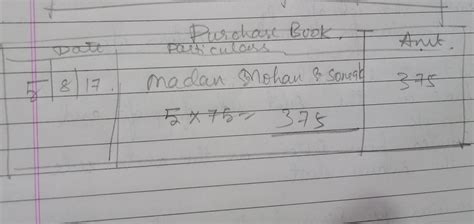 Purchase Book.
Date Particulars Amt.
5/8/17. Madan Mohan & Sons 375
5 x 75 = 375